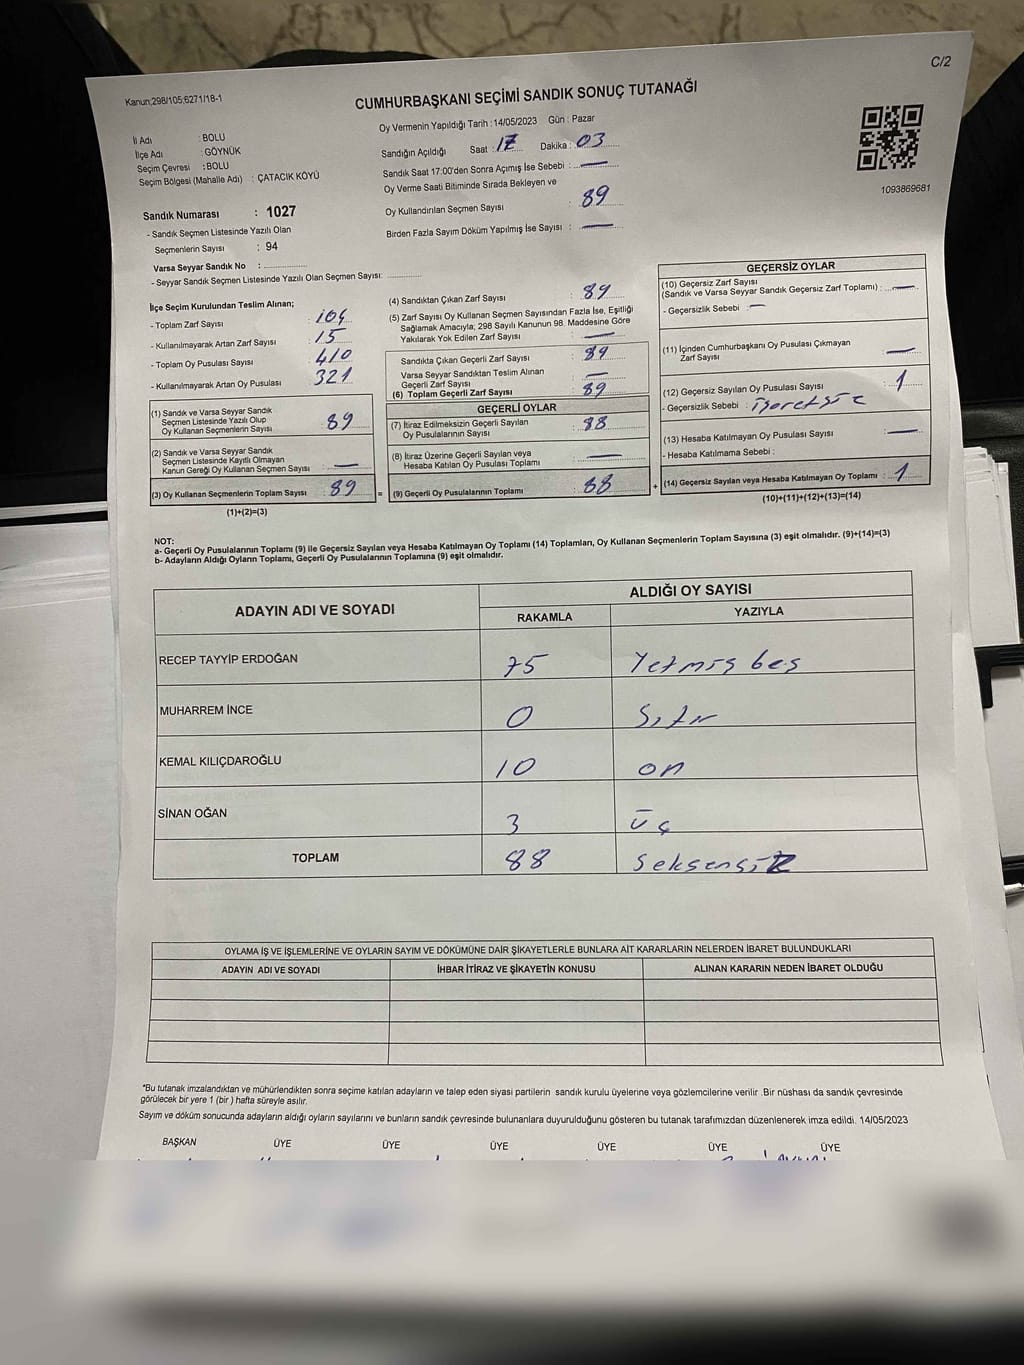 C/2
Kanun;298/105;6271/18-1
CUMHURBAŞKANI SEÇİMİ SANDIK SONUÇ TUTANAĞI
İl Adı : BOLU
İlçe Adı : GÖYNÜK
Seçim Çevresi : BOLU
Seçim Bölgesi (Mahalle Adı) : ÇATACIK KÖYÜ
Sandık Numarası : 1027
- Sandık Seçmen Listesinde Yazılı Olan
Seçmenlerin Sayısı : 94
Varsa Seyyar Sandık No :
- Seyyar Sandık Seçmen Listesinde Yazılı Olan Seçmen Sayısı:
Oy Vermenin Yapıldığı Tarih : 14/05/2023 Gün : Pazar
Sandığın Açıldığı Saat : 17 Dakika : 03
Sandık Saat 17:00'den Sonra Açımış İse Sebebi : —
Oy Verme Saati Bitiminde Sırada Bekleyen ve
Oy Kullandırılan Seçmen Sayısı : 89
Birden Fazla Sayım Döküm Yapılmış İse Sayısı : —
1093869681
İlçe Seçim Kurulundan Teslim Alınan;
- Toplam Zarf Sayısı : 104
- Kullanılmayarak Artan Zarf Sayısı : 15
- Toplam Oy Pusulası Sayısı : 410
- Kullanılmayarak Artan Oy Pusulası : 321
(1) Sandık ve Varsa Seyyar Sandık
Seçmen Listesinde Yazılı Olup
Oy Kullanan Seçmenlerin Sayısı : 89
(2) Sandık ve Varsa Seyyar Sandık
Seçmen Listesinde Kayıtlı Olmayan
Kanun Gereği Oy Kullanan Seçmen Sayısı : —
(3) Oy Kullanan Seçmenlerin Toplam Sayısı : 89 =
(1)+(2)=(3)
(4) Sandıktan Çıkan Zarf Sayısı : 89
(5) Zarf Sayısı Oy Kullanan Seçmen Sayısından Fazla İse, Eşitliği
Sağlamak Amacıyla; 298 Sayılı Kanunun 98. Maddesine Göre
Yakılarak Yok Edilen Zarf Sayısı : —
Sandıkta Çıkan Geçerli Zarf Sayısı : 89
Varsa Seyyar Sandıktan Teslim Alınan
Geçerli Zarf Sayısı : —
(6) Toplam Geçerli Zarf Sayısı : 89
GEÇERLİ OYLAR
(7) İtiraz Edilmeksizin Geçerli Sayılan
Oy Pusulalarının Sayısı : 88
(8) İtiraz Üzerine Geçerli Sayılan veya
Hesaba Katılan Oy Pusulası Toplamı : —
(9) Geçerli Oy Pusulalarının Toplamı : 88 +
GEÇERSİZ OYLAR
(10) Geçersiz Zarf Sayısı
(Sandık ve Varsa Seyyar Sandık Geçersiz Zarf Toplamı) : —
- Geçersizlik Sebebi : —
(11) İçinden Cumhurbaşkanı Oy Pusulası Çıkmayan
Zarf Sayısı : —
(12) Geçersiz Sayılan Oy Pusulası Sayısı : 1
- Geçersizlik Sebebi : işaretsiz
(13) Hesaba Katılmayan Oy Pusulası Sayısı : —
- Hesaba Katılmama Sebebi :
(14) Geçersiz Sayılan veya Hesaba Katılmayan Oy Toplamı : 1
(10)+(11)+(12)+(13)=(14)
NOT:
a- Geçerli Oy Pusulalarının Toplamı (9) ile Geçersiz Sayılan veya Hesaba Katılmayan Oy Toplamı (14) Toplamları, Oy Kullanan Seçmenlerin Toplam Sayısına (3) eşit olmalıdır. (9)+(14)=(3)
b- Adayların Aldığı Oyların Toplamı, Geçerli Oy Pusulalarının Toplamına (9) eşit olmalıdır.
ADAYIN ADI VE SOYADI ALDIĞI OY SAYISI
RAKAMLA YAZIYLA
RECEP TAYYİP ERDOĞAN 75 Yetmiş beş
MUHARREM İNCE 0 Sıfır
KEMAL KILIÇDAROĞLU 10 on
SİNAN OĞAN 3 üç
TOPLAM 88 Seksensiz
OYLAMA İŞ VE İŞLEMLERİNE VE OYLARIN SAYIM VE DÖKÜMÜNE DAİR ŞİKAYETLERLE BUNLARA AİT KARARLARIN NELERDEN İBARET BULUNDUKLARI
ADAYIN ADI VE SOYADI İHBAR İTİRAZ VE ŞİKAYETİN KONUSU ALINAN KARARIN NEDEN İBARET OLDUĞU
*Bu tutanak imzalandıktan ve mühürlendikten sonra seçime katılan adayların ve talep eden siyasi partilerin sandık kurulu üyelerine veya gözlemcilerine verilir .Bir nüshası da sandık çevresinde
görülecek bir yere 1 (bir ) hafta süreyle asılır.
Sayım ve döküm sonucunda adayların aldığı oyların sayılarını ve bunların sandık çevresinde bulunanlara duyurulduğunu gösteren bu tutanak tarafımızdan düzenlenerek imza edildi. 14/05/2023
BAŞKAN ÜYE ÜYE ÜYE ÜYE ÜYE ÜYE